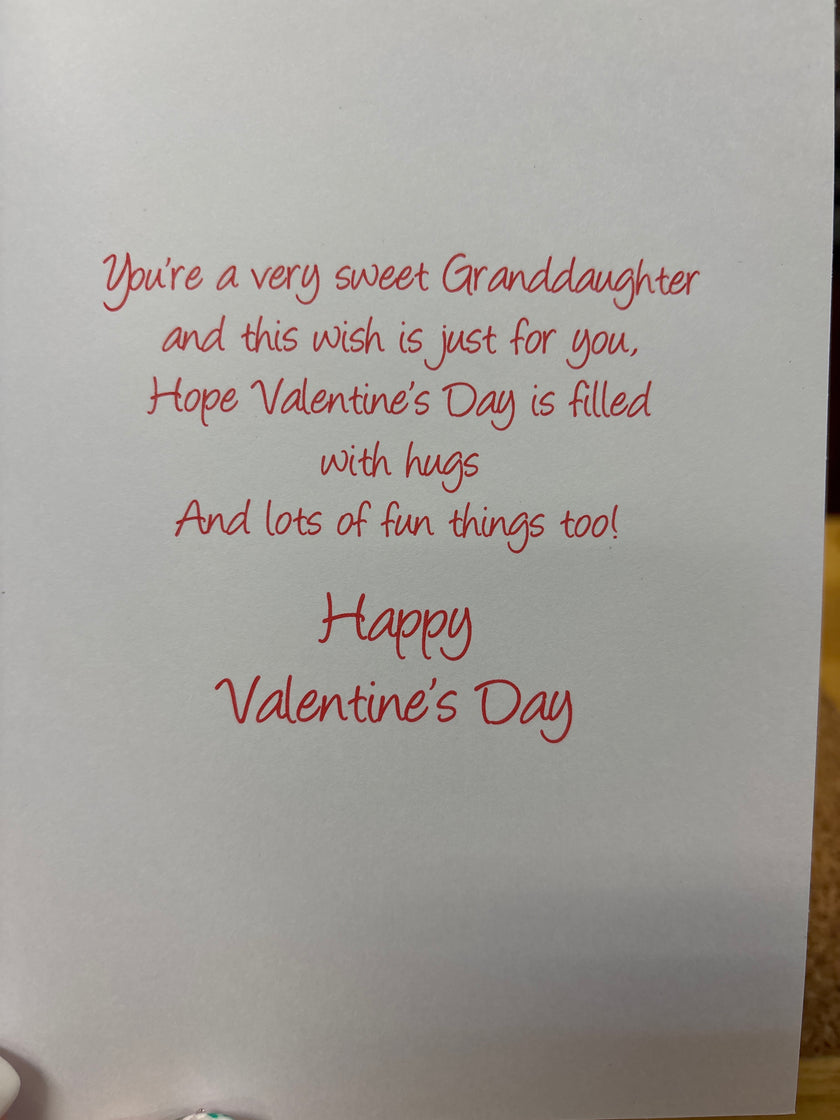 You're a very sweet Granddaughter
and this wish is just for you,
Hope Valentine's Day is filled
with hugs
And lots of fun things too!
Happy
Valentine's Day